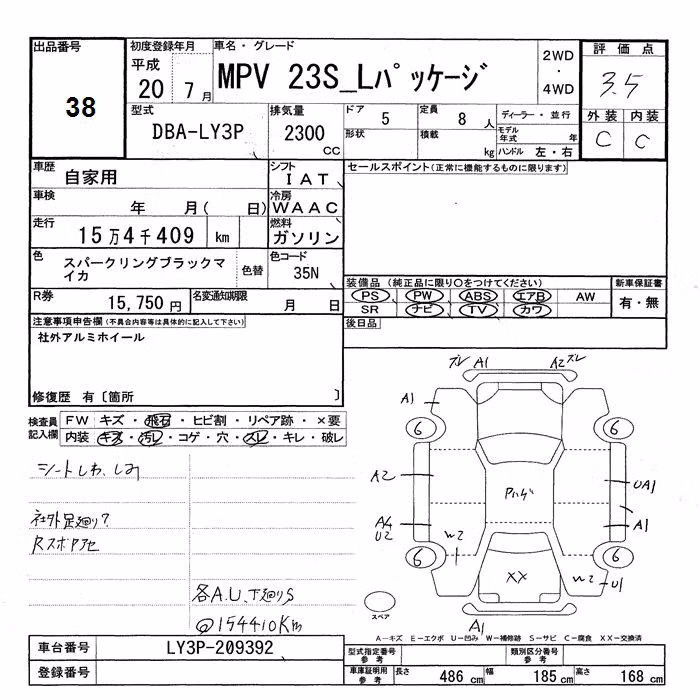 出品番号
38
初度登録年月
平成
20 7月
車名・グレード
MPV 23S_Lパッケージ
2WD
・
4WD
評価点
3.5
外装 内装
C C
型式
DBA-LY3P
排気量
2300
CC
ドア 5
形状
定員 8 人
積載 kg
ディーラー・並行
モデル年式 年
ハンドル 左・右
車歴 自家用
シフト IAT
車検 年 月( 日)
冷房 WAAC
走行 15万4千409 km
燃料 ガソリン
色 スパークリングブラックマイカ
色替
色コード 35N
R券 15,750円
名変通知期限 月 日
セールスポイント(正常に機能するものに限ります)
装備品(純正品に限り○をつけてください)
PS PW ABS エアB AW
SR ナビ TV カワ
新車保証書
有・無
後日品
注意事項申告欄(不具合内容等は具体的に記入して下さい)
社外アルミホイール
修復歴 有〔箇所 〕
検査員記入欄
FW キズ・飛石・ヒビ割・リペア跡・×要
内装 キズ・汚レ・コゲ・穴・スレ・キレ・破レ
シートしわ、しみ
社外足廻り?
Rスポアセ
各A.U、下廻りS
@154410Km
ズレ A1 A2 ズレ
A1
6 6
A2
UA1
A4
U2
A1
W2
6 6
XX
W2 U1
A1
スペア
A―キズ E―エクボ U―凹み W―補修跡 S―サビ C―腐食 XX―交換済
車台番号 LY3P-209392
登録番号
型式指定番号 参考
類別区分番号 参考
車庫証明用 参考
長さ 486 cm 幅 185 cm 高さ 168 cm